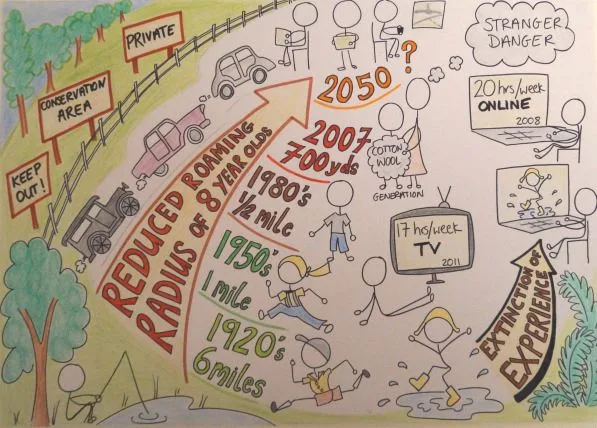 PRIVATE
CONSERVATION
AREA
KEEP
OUT!
REDUCED ROAMING
RADIUS OF 8 YEAR OLDS
2050 ?
2007
700yds
1980's
1/2 mile
1950's
1 mile
1920's
6 miles
STRANGER
DANGER
20 hrs/week
ONLINE
2008
COTTON
WOOL
GENERATION
17 hrs/week
TV
2011
EXTINCTION OF
EXPERIENCE